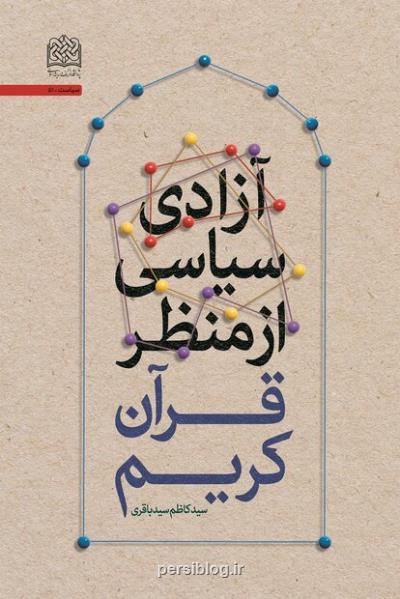 سیاست - ۵۱
آزادی
سیاسی
از منظر
قرآن
کریم
سیدکاظم سیدباقری
persiblog.ir